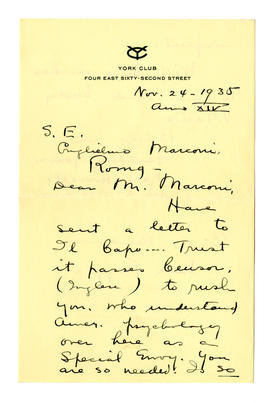 YORK CLUB
FOUR EAST SIXTY-SECOND STREET
Nov. 24-1935
Anno XIV
S. E.
Guglielmo Marconi,
Roma-
Dear Mr. Marconi,
Have
sent a letter to
Il Capo.... Trust
it passes Censor,
(Inglese) to rush
you, who understand
Amer. psychology
over here as a
Special Envoy. You
are so needed. Is so